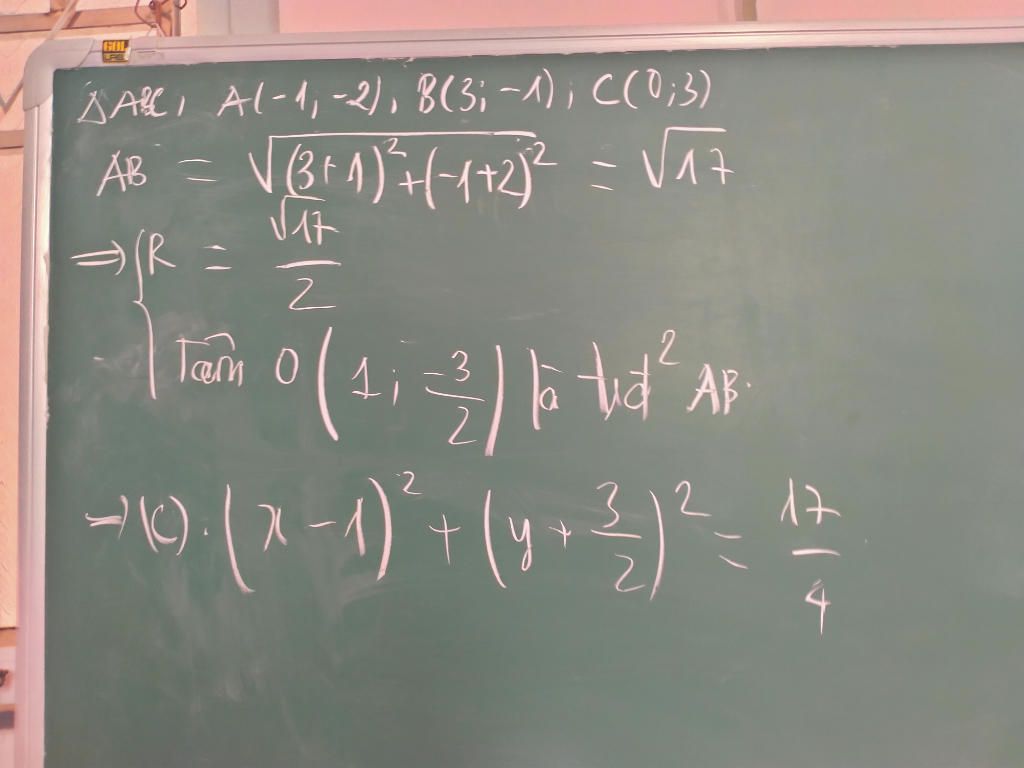 ΔABC, A(-1; -2), B(3; -1); C(0; 3)
AB = √((3+1)² + (-1+2)²) = √17
⇒ { R = √17/2
Tâm O (1; -3/2) là tđ² AB.
→ (C): (x - 1)² + (y + 3/2)² = 17/4